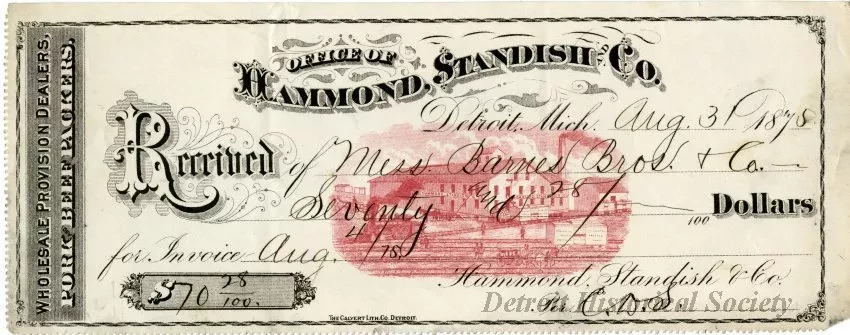 WHOLESALE PROVISION DEALERS,
PORK BEEF PACKERS.
OFFICE OF
HAMMOND, STANDISH AND CO.
Detroit, Mich. Aug. 31 1878
Received of Mess. Barnes Bros. & Co.
Seventy and 28/100 Dollars
for Invoice Aug. 4/78
$70 28/100.
Hammond, Standish & Co.
Detroit Historical Society
THE CALVERT LITH. CO. DETROIT.